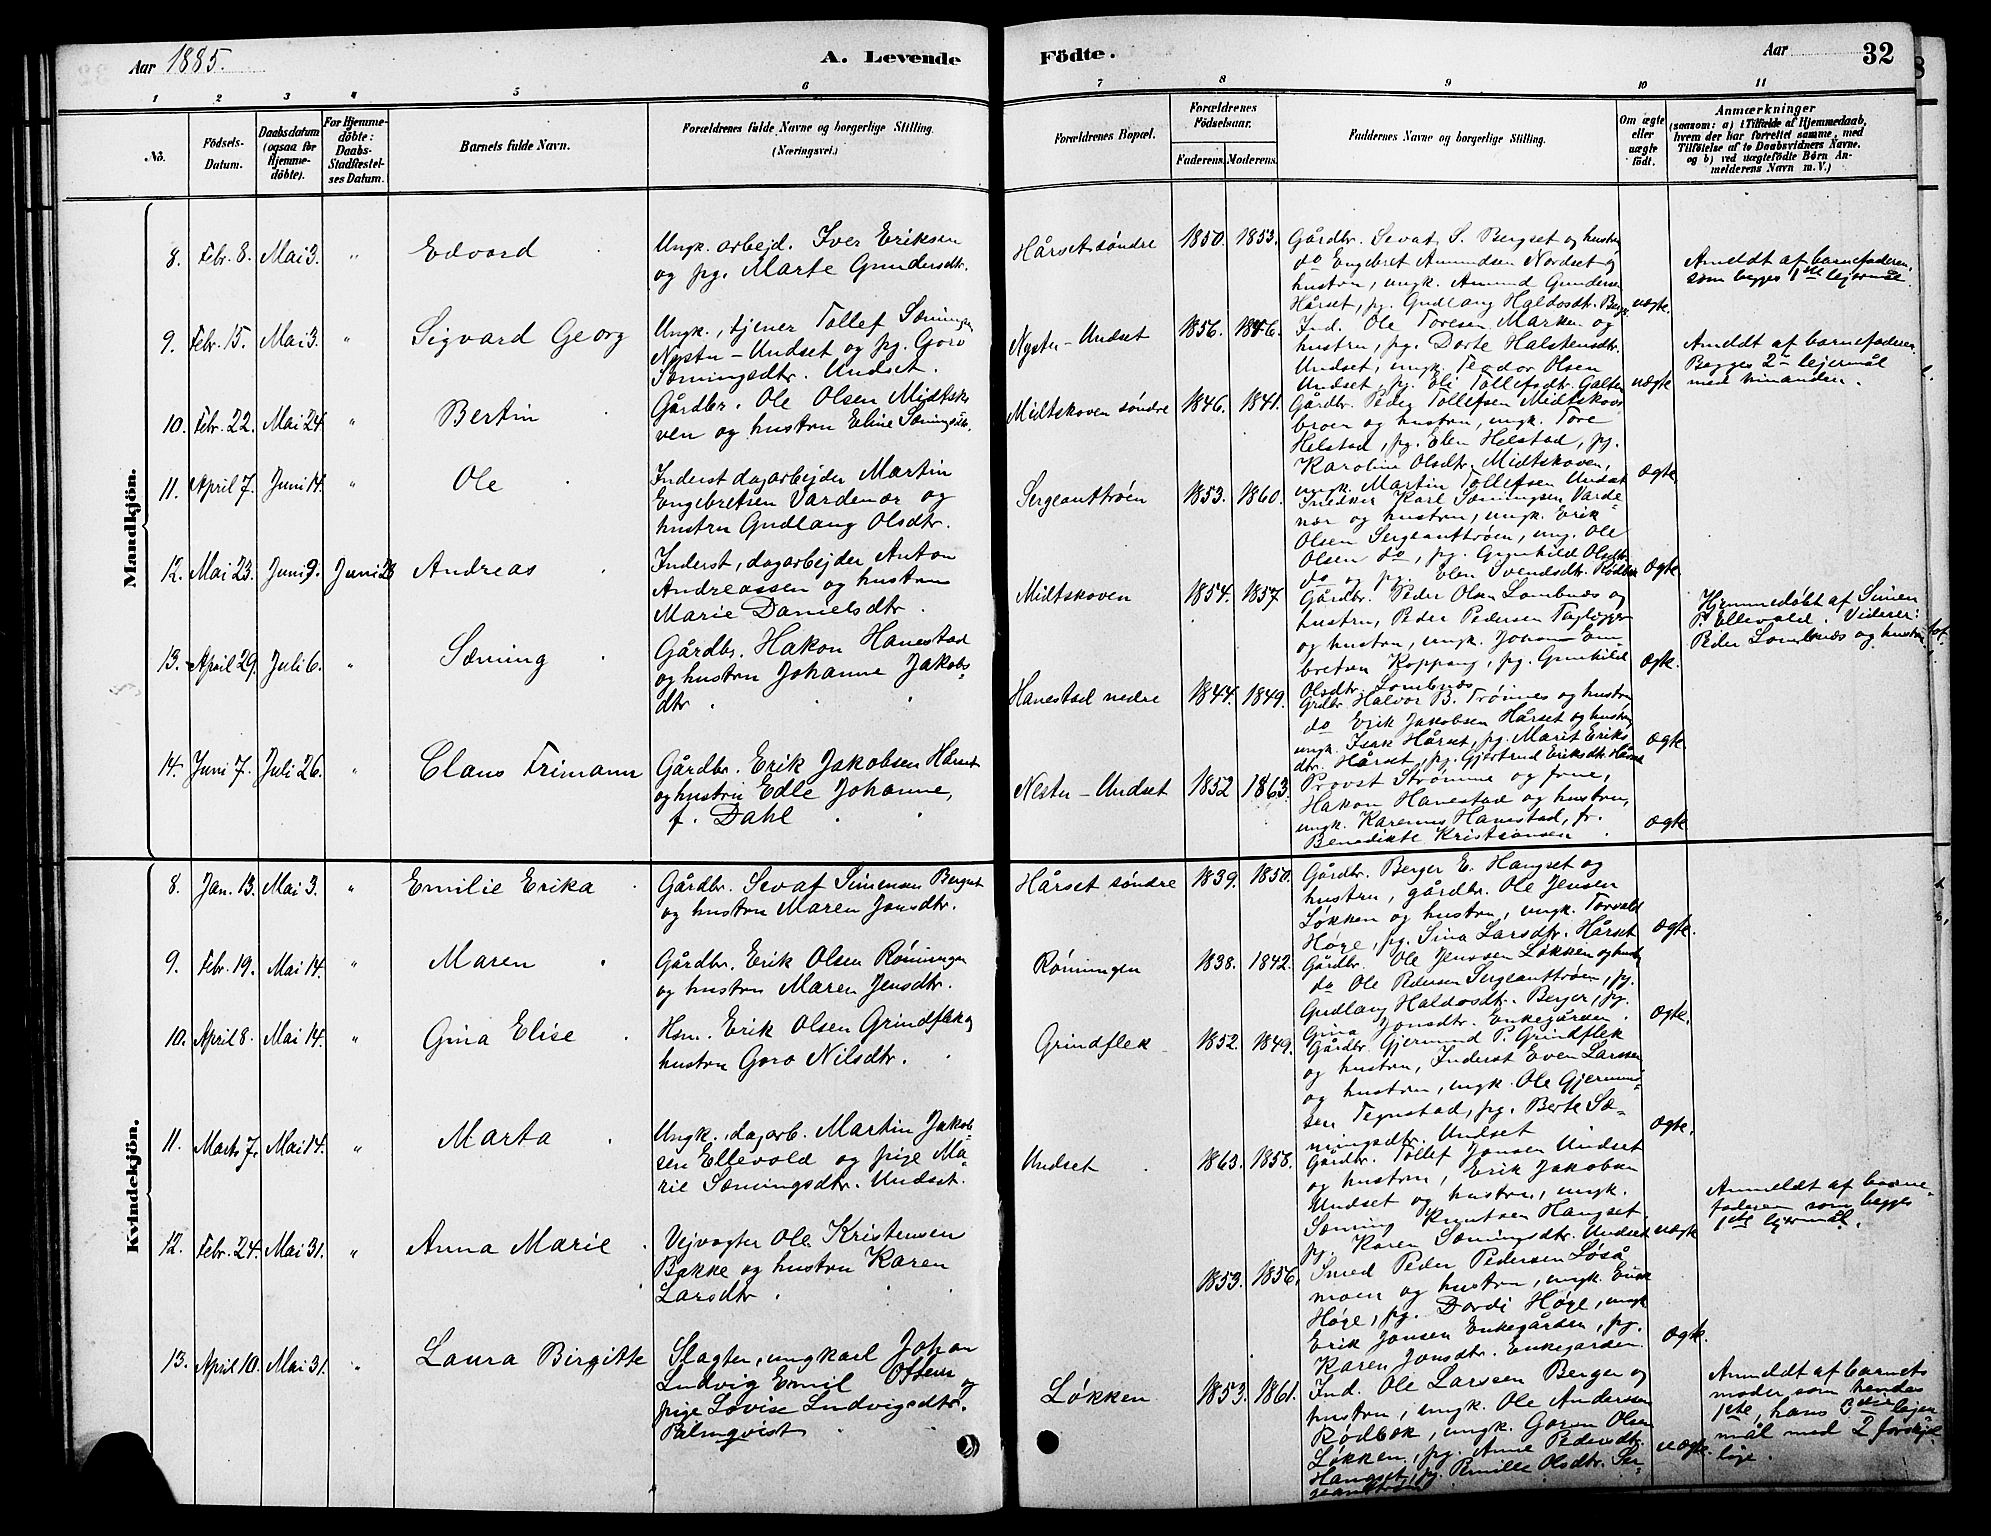 Aar 1885. A. Levende Födte. Aar 32
1 2 3 4 5 6 7 8 9 10 11
No. Födsels-Datum. Daabsdatum (ogsaa for Hjemme-döbte). For Hjemme-döbte: Daabs-Stadfæstel-ses Datum. Barnets fulde Navn. Forældrenes fulde Navne og borgerlige Stilling. (Næringsvei.)
Forældrenes Bopæl. Forældrenes Födselsaar. Faderens. Moderens. Faddernes Navne og borgerlige Stilling. Om ægte eller uægte födt. Anmærkninger
(saasom: a) i Tilfælde af Hjemmedaab,
hvem der har forrettet samme, med
Tilföielse af to Daabsvidners Navne.
og b) ved uægtefödte Børn An-
melderens Navn m. V.)
Mandkjön.
8. Febr. 8. Mai 3. " Edvard
Ungk. arbejd. Iver Eriksen
og pg. Marte Gundersdtr.
Hårset søndre 1850. 1853.
Gårdbr. Sevat S. Bergset og hustru
do Engebret Amundsen Nordset og
hustru, ungk. Amund Gunders
Hårset, pg. Gudlaug Haldosdtr. Berg
uægte.
Anmeldt af barnefaderen.
som begges 1ste lejermål.
9. Febr. 15. Mai 3. " Sigvard Georg
Ungk., tjener Tollef Sæmingsen
Nystu-Undset og pg. Goro
Sæmingsdtr. Undset.
Nystu-Undset 1856. 1856.
Ind. Ole Toresen Marken og
hustru, pg. Dorte Halstensdtr.
Undset, ungk. Teodor Olsen
Undset, pg. Eli Tollefsdtr. Galten
uægte
Anmeldt af barnefaderen.
Begges 2. lejermål
med hinanden.
10. Febr. 22. Mai 24. " Bertin
Gårdbr. Ole Olsen Midtsko
ven og hustru Eline Sæmingsdtr.
Midtskoven søndre 1846. 1841.
Gårdbr. Peder Tollefsen Midtskov
broen og hustru, ungk. Tore
Helstad, pg. Elen Helstad, pg.
Karoline Olsdtr. Midtskoven,
ungk. Martin Tollefsen Undset
ægte
11. April 7. Juni 14. " Ole
Inderst dagarbejder Martin
Engebretsen Vardenær og
hustru Gudlaug Olsdtr.
Sergeanttrøen 1853. 1860.
Karl Sæmingsen Varde
nær og hustru, ungk. Erik
Olsen Sergeanttrøen, ung. Ole
Olsen do, pg. Gunhild Olsdtr.
do og pg. Elen Svendsdtr. Rødbæk
ægte.
12. Mai 23. Juni 9. Juni 28 Andreas
Inderst, dagarbejder Anton
Andreassen og hustru
Marie Danielsdtr.
Midtskoven 1854. 1857
Gårdbr. Peder Olsen Lombnæs og
hustru, Peder Pedersen
og hustru, ungk. Johan Em
bretsen Koppang, pg. Gunhild
Olsdtr. Lombnæs
ægte.
Hjemmedøbt af Simen
P. Ellevold. Vidner:
Peder Lombnæs og hustru
13. April 29. Juli 6. " Sæming
Gårdbr. Hakon Hanestad
og hustru Johanne Jakobs
dtr
Hanestad nedre 1844. 1849.
Grdbr. Halvor B. Trønnes og hustru
do Erik Jakobsen Hårset og hustru
ungk. Isak Hårset, pg. Marit Eriks
dtr. Hårset, pg. Gjertrud Eriksdtr. Hårset
ægte.
14. Juni 7. Juli 26. " Claus Frimann
Gårdbr. Erik Jakobsen Hårset
og hustru Edle Johanne,
f. Dahl
Nestu-Undset 1852 1863.
Provst Strømme og frue,
Hakon Hanestad og hustru,
ungk. Karenus Hanestad, fr.
Benedikte Kristiansen
ægte
Kvindekjön.
8. Jan. 13. Mai 3. " Emilie Erika
Gårdbr. Sevat Simensen Bergset
og hustru Maren Jonsdtr.
Hårset søndre 1839. 1850.
Gårdbr. Berger E. Haugset og
hustru, gårdbr. Ole Jensen
Løkken og hustru, ungk. Torvald
Høge, pg. Sina Larsdtr. Hårset
ægte.
9. Febr. 19. Mai 14. " Maren
Gårdbr. Erik Olsen Røningen
og hustru Maren Jensdtr.
Røningen 1838. 1842.
Gårdbr. Ole Jenssen Løkken og hustru
do Ole Pedersen Sergeanttrøen, pg.
Gudlaug Haldosdtr. Berger, pg.
Gina Jonsdtr. Enkegården.
ægte.
10. April 8. Mai 14. " Gina Elise
Hsm. Erik Olsen Grindflek og
hustru Goro Nilsdtr.
Grindflek 1852. 1849.
Gårdbr. Gjermund P. Grindflek
og hustru, Inderst Even Larssen
og hustru, ungk. Ole Gjermund-
sen Tegnstad, pg. Berte Sæ-
mingsdtr. Undset
ægte.
11. Marts 7. Mai 14. " Marta
Ungk., dagarb. Martin Jakob
sen Ellevold og pige Ma-
rie Sæmingsdtr. Undset.
Undset 1863. 1858.
Gårdbr. Tollef Jonsen Undset
og hustru, Erik Jakobsen
Undset og hustru, ungk.
Sæming Knutsen Haugset,
pg. Karen Sæmingsdtr. Undset
uægte
Anmeldt af barne-
faderen som begges
1ste lejermål.
12. Febr. 24. Mai 31. " Anna Marie
Vejvogter Ole Kristensen
Bakke og hustru Karen
Larsdtr
1853. 1856.
Smed Peder Pedersen Løså
moen og hustru, ungk. Erik
Høge, pg. Dordi Høge, ungk
Erik Jonsen Enkegården, pg.
Karen Jonsdtr. Enkegården
ægte.
13. April 10. Mai 31. " Laura Birgitte
Slagter, ungkarl Johan
Ludvig Emil Olsen og
pige Lovise Ludvigsdtr.
Palmqvist
Løkken 1853. 1861.
Ind. Ole Larssen Berger og
hustru, ungk. Ole Andersen
Rødbæk, ungk. Goren Olsen
Løkken, pg. Anne Pedersdtr.
Haugset, pg. Pernille Olsdtr. Ser-
geanttrøen
uægte.
Anmeldt af barnets
moder, som hendes
1ste, hans 3die lejer
mål med 2 forskjel
lige.